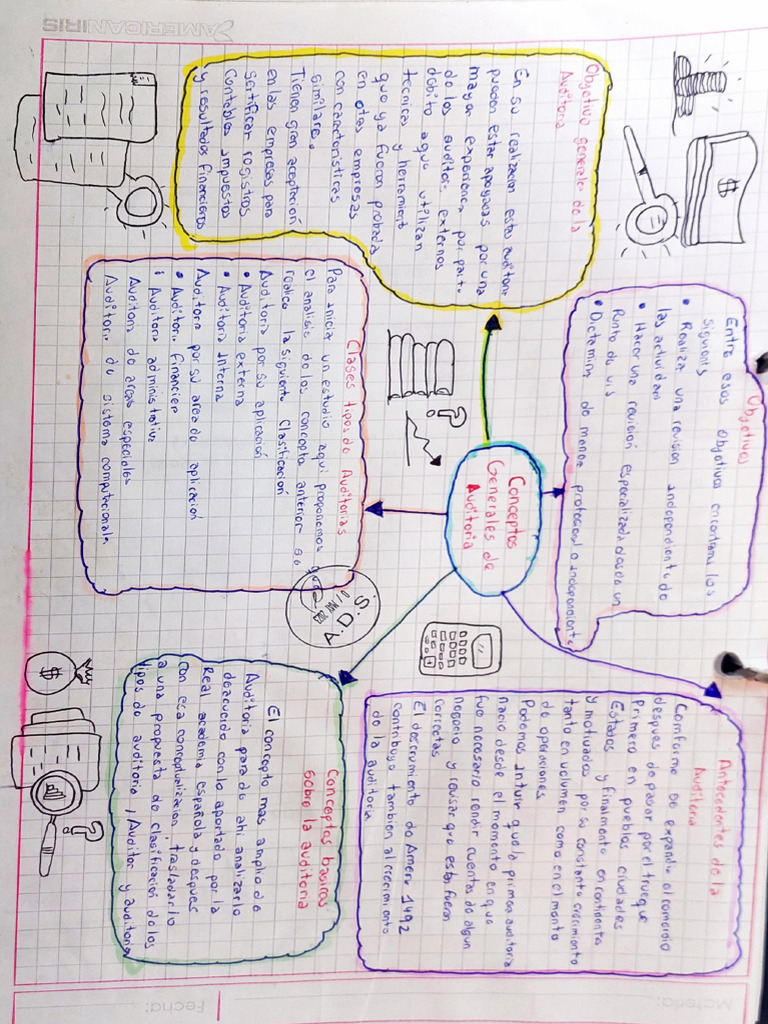 Conceptos
Generales de
Auditoria
Objetivo general de la
Auditoria
En su realizacion estas auditoria
pueden estar apoyadas por una
mayor experiencia por parte
de los auditores externos
debito a que utilizan
tecnicas y herramient
que ya fueron probada
en otras empresas
con caracteristicas
similare.
Tienen gran aceptación
en las empresas para
sertificar registros
Contables impuestos
y resultados financieros
Objetivos
Entre esos objetivos encontramos los
siguienes
• Realizar una revision independiente de
las actividad
• Hacer una revisión especializada desde un
Punto de vis
• Dictamina de manera profecional e independiente
Clases tipos de Auditorias
Para iniciar un estudio aqui proponemos que
el analisis de los concepto anterior se
realice la siguiente clasificación
Auditoria por su aplicación
• Auditoria externa
• Auditoria Interna
Auditoria por su area de aplicación
• Auditoria financier
• Auditoria administrativa
Auditoria de areas especiales
Auditoria de sistema computacionale.
Antecedentes de la
Auditoria
Conforme se expandio el comercio
despues de pasar por el trueque
Primero en pueblos ciudades
Estados y finalmente en continente
y motivados por su constante crecimiento
tanto en volumen como en el monto
de operaciones
Podemos intuir que la primera auditoria
nacio desde el momento en que
fue necesario rendir cuentas de algun
negocio y revisar que estas fueron
correctas
El descrumiento de America 1492
contribuyo tambien al crecimiento
de la auditoria
Conceptos basicos
sobre la auditoria
El concepto mas amplio de
Auditoria para de ahi analizarlo
deacuerdo con lo aportado por la
Real academia española y despues
con esa conceptualizacion, trasladarlo
a una propuesta de clasificacion de los
tipos de auditoria, Auditor y auditoria
A.D.S.
AMERICANIRIS
Materia:
Fecha: